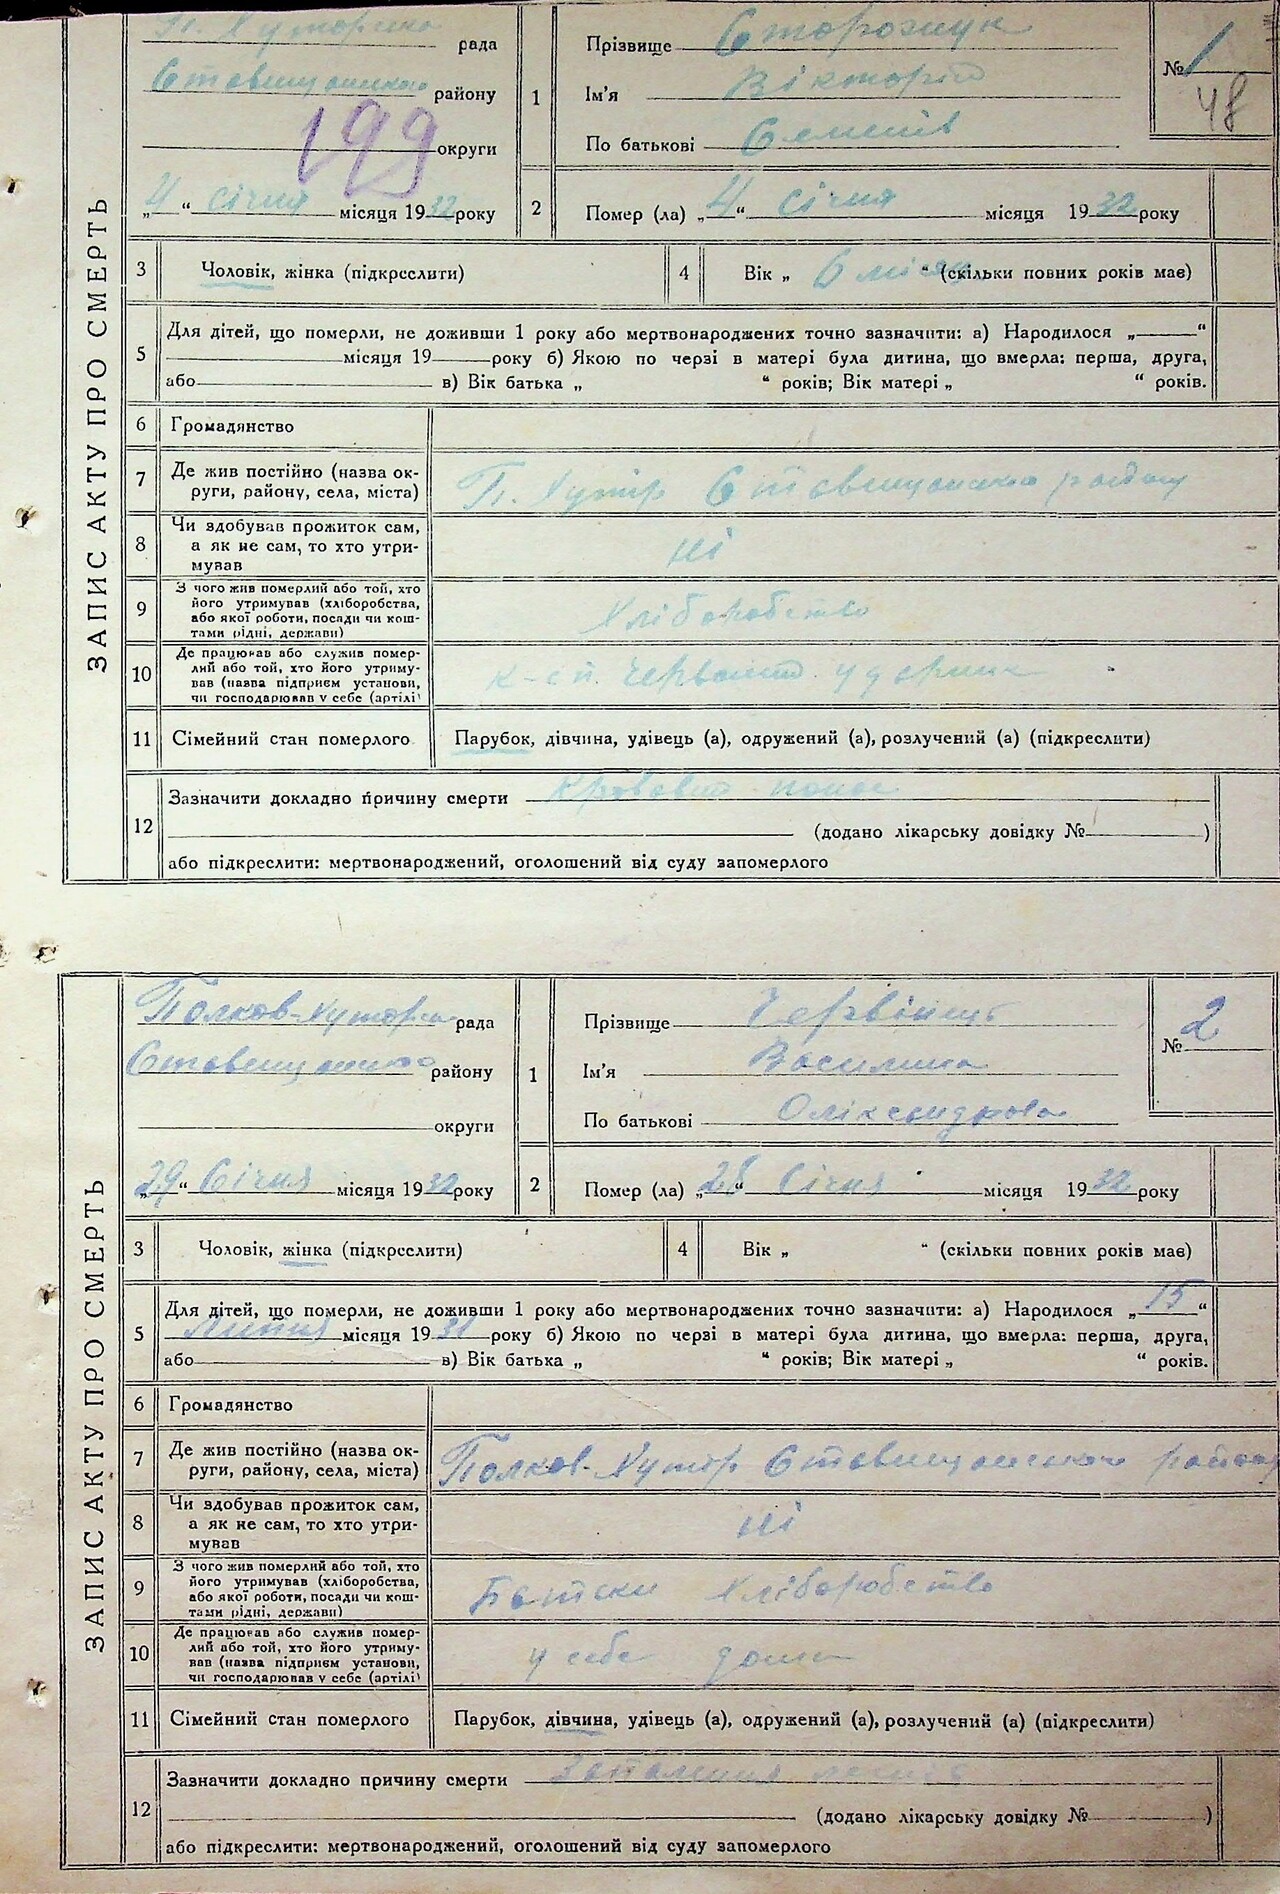 ЗАПИС АКТУ ПРО СМЕРТЬ
П. Хуторська рада
Ставищанського району
округи
199
„4“ січня місяця 1932 року
1
Прізвище Сторожук
Ім'я Вікторій
По батькові Семенів
№ 1
48
2
Помер (ла) „4“ січня місяця 1932 року
3 Чоловік, жінка (підкреслити)
4 Вік „6 місяц“ (скільки повних років має)
5 Для дітей, що померли, не доживши 1 року або мертвонароджених точно зазначити: а) Народилося „ “
місяця 19 року б) Якою по черзі в матері була дитина, що вмерла: перша, друга,
або в) Вік батька „ “ років; Вік матері „ “ років.
6 Громадянство
7 Де жив постійно (назва ок-
руги, району, села, міста)
П. Хутір Ставищанського району
8 Чи здобував прожиток сам,
а як не сам, то хто утри-
мував
ні
9 З чого жив померлий або той, хто
його утримував (хліборобства,
або якої роботи, посади чи кош-
тами рідні, держави)
Хліборобство
10 Де працював або служив помер-
лий або той, хто його утриму-
вав (назва підприєм установи,
чи господарював у себе (артілі)
к-сп. Червоний ударник
11 Сімейний стан померлого
Парубок, дівчина, удівець (а), одружений (а), розлучений (а) (підкреслити)
12 Зазначити докладно причину смерти Кровавий понос
(додано лікарську довідку № )
або підкреслити: мертвонароджений, оголошений від суду запомерлого
ЗАПИС АКТУ ПРО СМЕРТЬ
Полков-Хуторська рада
Ставищанського району
округи
„29“ Січня місяця 1932 року
1
Прізвище Червінець
Ім'я Василина
По батькові Оліксандрова
№ 2
2
Помер (ла) „28“ Січня місяця 1932 року
3 Чоловік, жінка (підкреслити)
4 Вік „ “ (скільки повних років має)
5 Для дітей, що померли, не доживши 1 року або мертвонароджених точно зазначити: а) Народилося „15“
Липня місяця 1931 року б) Якою по черзі в матері була дитина, що вмерла: перша, друга,
або в) Вік батька „ “ років; Вік матері „ “ років.
6 Громадянство
7 Де жив постійно (назва ок-
руги, району, села, міста)
Полков-Хутір Ставищанського району
8 Чи здобував прожиток сам,
а як не сам, то хто утри-
мував
ні
9 З чого жив померлий або той, хто
його утримував (хліборобства,
або якої роботи, посади чи кош-
тами рідні, держави)
Батьки Хліборобство
10 Де працював або служив помер-
лий або той, хто його утриму-
вав (назва підприєм установи,
чи господарював у себе (артілі)
у себе дома
11 Сімейний стан померлого
Парубок, дівчина, удівець (а), одружений (а), розлучений (а) (підкреслити)
12 Зазначити докладно причину смерти Запалення легенів
(додано лікарську довідку № )
або підкреслити: мертвонароджений, оголошений від суду запомерлого